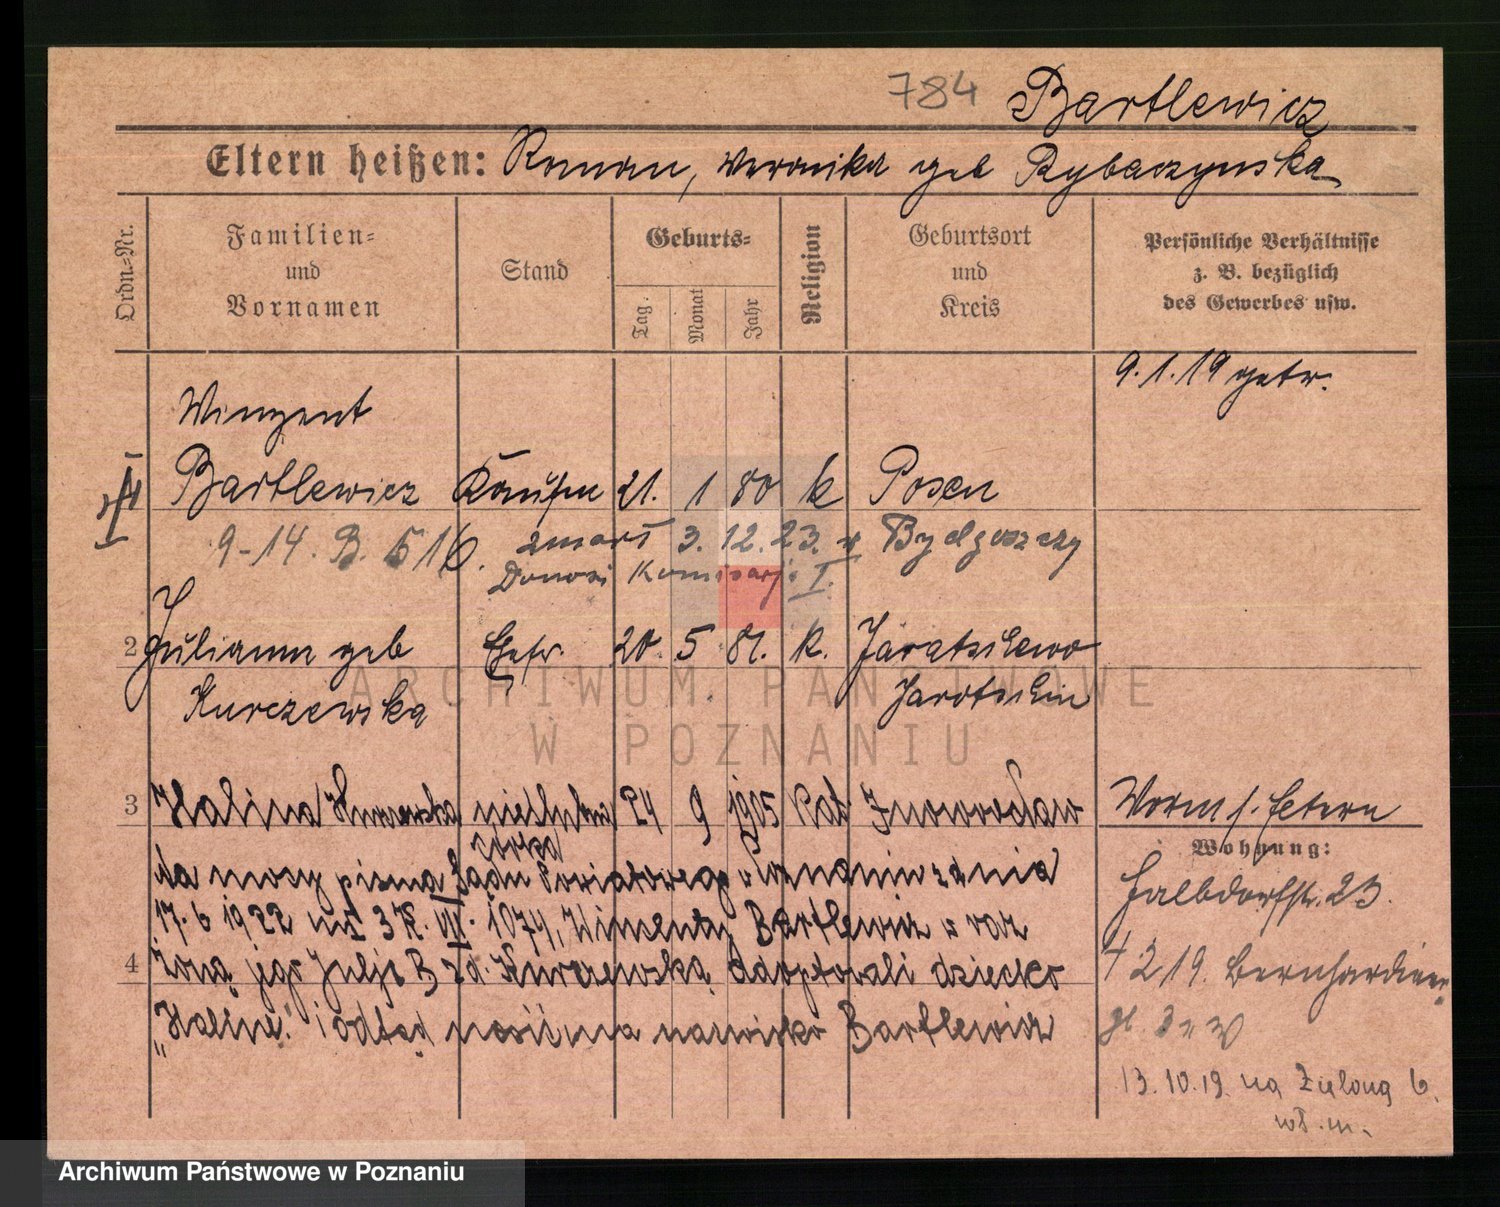 784 Bartlewicz
Eltern heißen: Roman, Weronika geb Rybaczynska
Ordn=Nr.
Familien=
und
Vornamen
Stand
Geburts=
Tag.
Monat
Jahr
Religion
Geburtsort
und
Kreis
Persönliche Verhältnisse
z. B. bezüglich
des Gewerbes usw.
9.1.19 getr.
Winzent
Bartlewicz Kaufm 21. 1 80 k Posen
9-14. B. 516. zmarł 3. 12. 23. w Bydgoszczy
Donosi Komisarj. I.
2 Julianna geb Ehefr. 20. 5 81. k. Jaratschewo
Kurczewska Jarotschin
3 Halina Kurczewska nieślubna 24 9 1905 kat Inowrocław
córka
Na mocy pisma Sądu Powiatowego w Poznaniu z dnia
17. 6 1922 3 R. VII. 1074, Bartlewicz
4 żona jego Julja B zd. Kurczewska adoptowali dziecko
"Halinę" i odtąd nosić ma nazwisko Bartlewicz
Worm f. Estern
Wohnung:
Halbdorfstr. 23.
4 2 19. Bernhardiner
pl. 3
13. 10. 19. na Zieloną 6.
wł. m.
ARCHIWUM PAŃSTWOWE
W POZNANIU
Archiwum Państwowe w Poznaniu